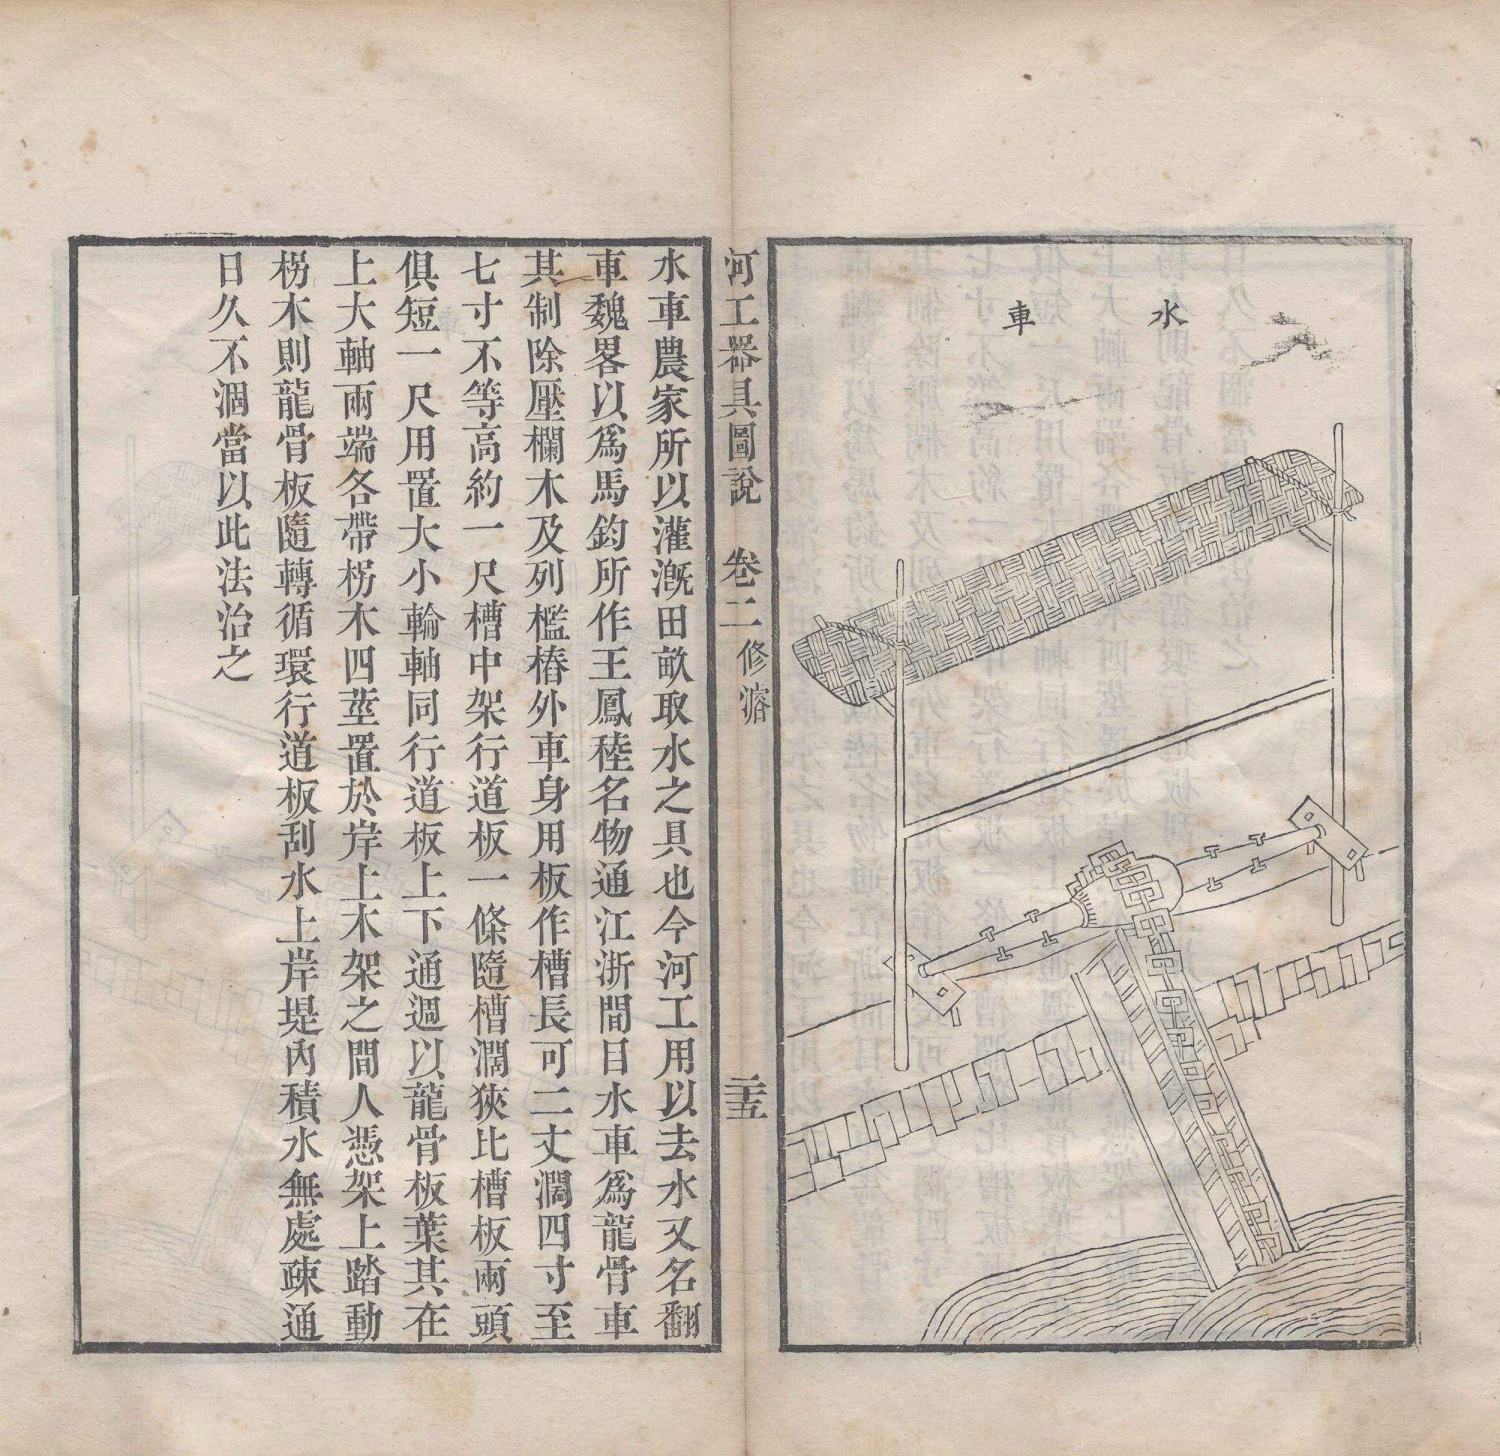 水車
河工器具圖說 卷二 修濬 三十五
水車農家所以灌漑田畝取水之具也今河工用以去水又名翻
車魏畧以爲馬鈞所作王鳳稑名物通江浙間目水車爲龍骨車
其制除壓欄木及列檻樁外車身用板作槽長可二丈濶四寸至
七寸不等高約一尺槽中架行道板一條隨槽濶狹比槽板兩頭
俱短一尺用置大小輪軸同行道板上下通週以龍骨板葉其在
上大軸兩端各帶柺木四莖置於岸上木架之間人憑架上踏動
柺木則龍骨板隨轉循環行道板刮水上岸堤內積水無處疎通
日久不涸當以此法治之